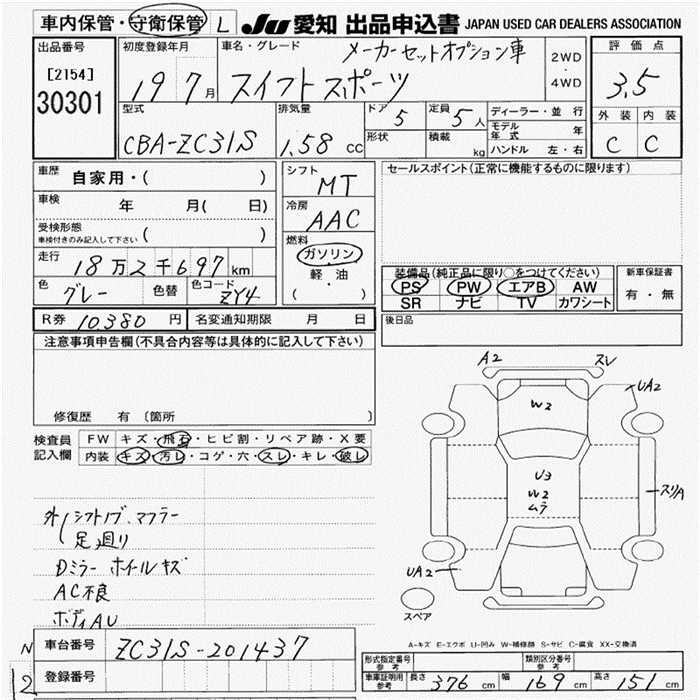 車内保管・守衛保管 L JU 愛知 出品申込書 JAPAN USED CAR DEALERS ASSOCIATION
出品番号 初度登録年月 車名・グレード メーカーセットオプション車 2WD・4WD 評価点
[2154]
30301 19 7月 スイフトスポーツ 3.5
型式 排気量 ドア 5 定員 5人 ディーラー・並行 外装 内装
CBA-ZC31S 1.58 cc 形状 積載 kg モデル年式 年 C C
ハンドル 左・右
車歴 自家用・( ) シフト MT セールスポイント(正常に機能するものに限ります)
車検 年 月( 日) 冷房 AAC
受検形態
車検付きのみ記入して下さい ( ) 燃料 ガソリン
走行 18万2千697km 軽・油 装備品(純正品に限り○をつけてください) 新車保証書
色 グレー 色替 色コード ZY4 ( ) PS PW エアB AW 有・無
SR ナビ TV カワシート
R券 10380円 名変通知期限 月 日 後日品
注意事項申告欄(不具合内容等は具体的に記入して下さい)
修復歴 有 〔箇所
検査員 FW キズ・飛石・ヒビ割・リペア跡・X要
記入欄 内装 キズ・汚レ・コゲ・穴・スレ・キレ・破レ
外 シフトノブ、マフラー
足廻り
Dミラー ホイールキズ
AC不良
ボディAU
A2 スレ
UA2
W2
U3
W2
ムラ
スリA
UA2
スペア
A-キズ E-エクボ U-凹み W-補修跡 S-サビ C-腐食 XX-交換済
N 車台番号 ZC31S-201437
12 登録番号
形式指定番号 参考 類別区分番号 参考
車庫証明用 参考 長さ 376 cm 幅 169 cm 高さ 151 cm